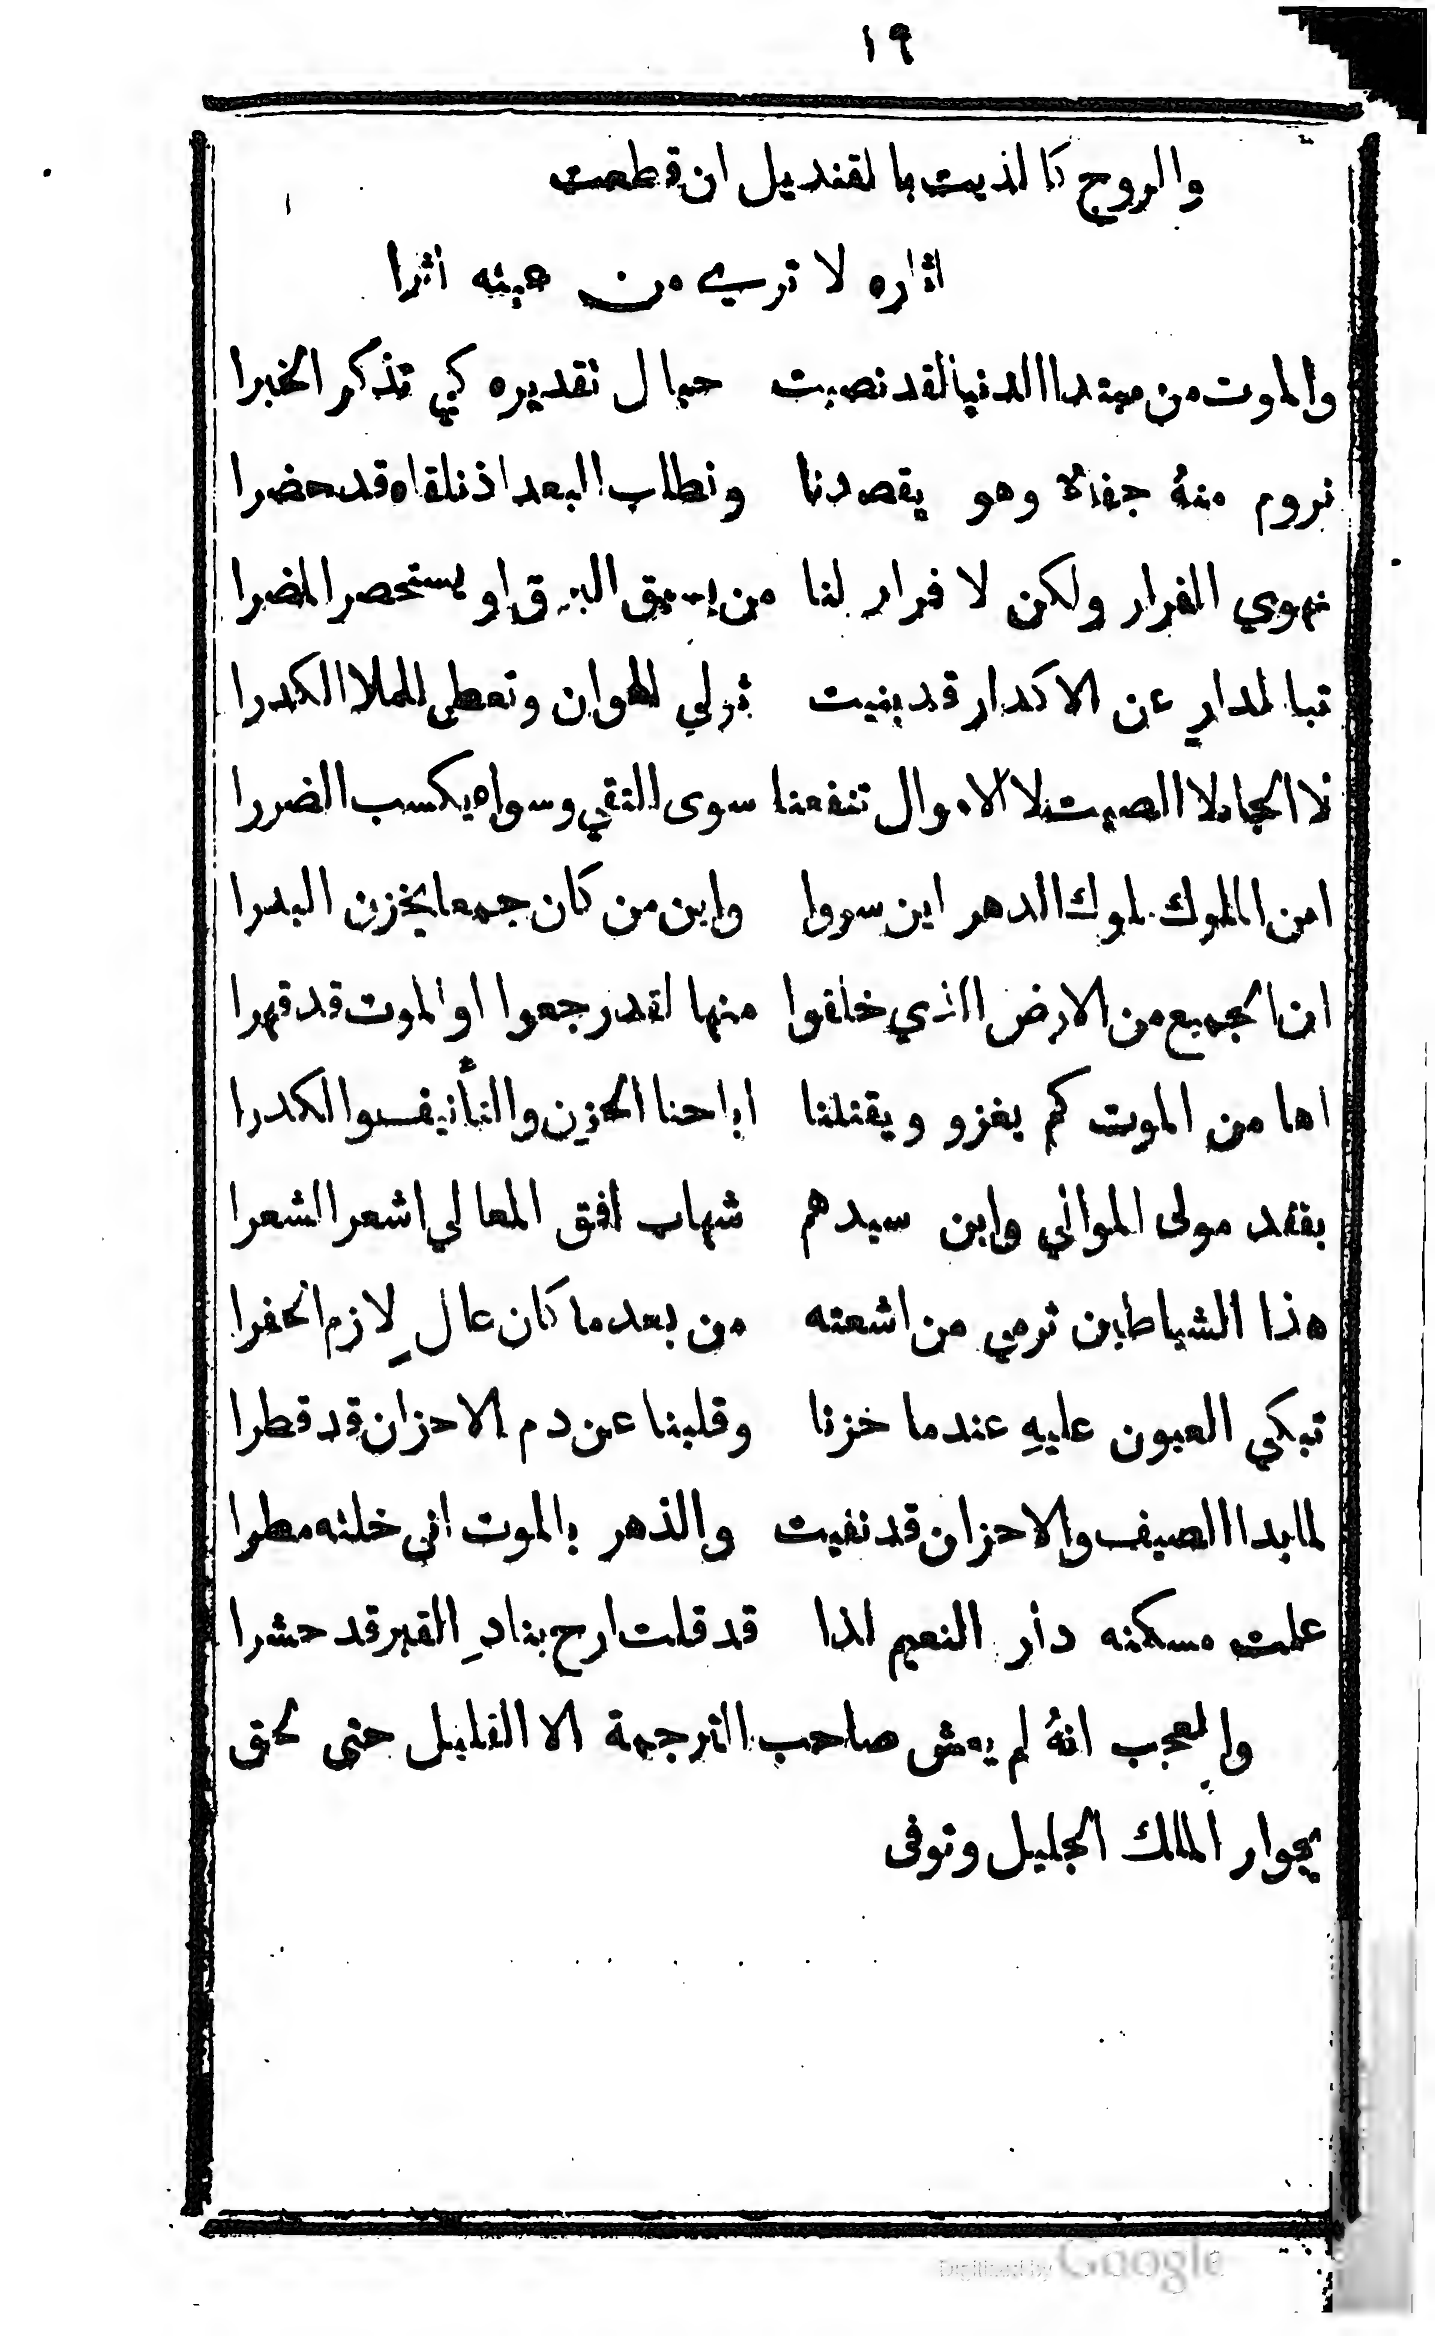 ١٩
والروح كالذيت بالقنديل ان قطعت
اثاره لا تري من هيئه اثرا
والموت من مبتدا الدنيا لقد نصبت حبال تقديره كي تذكر الخبرا
نروم منهُ جفاهُ وهو يقصدنا ونطلب البعد اذ نلقاه قد حضرا
نهوي الفرار ولكن لا فرار لنا من يسبق البرق او يستحصر المضرا
تبا لدارٍ عن الاكدار قد بنيت تولي الهوان وتعطي للملا الكدرا
لا الجاه لا الصيت لا الاموال تنفعنا سوى التقي وسواه يكسب الضررا
امن الملوك ملوك الدهر اين سروا واين من كان جمعا يخزن البدرا
ان الجميع من الارض الذي خلقوا منها لقد رجعوا او الموت قد قهرا
اها من الموت كم يغزو ويقتلنا اباحنا الحزن والتأنيف والكدرا
بفقد مولى الموالي وابن سيدهم شهاب افق المعالي اشعر الشعرا
هذا الشياطين ترمي من اشعته من بعد ما كان عالٍ لازم الحفرا
تبكي العيون عليهِ عندما خزنا وقلبنا عن دم الاحزان قد قطرا
لما بدا الصيف والاحزان قد نفيت والدهر بالموت اني خلته مطرا
علمت مسكنه دار النعيم لذا قد قلت ارخ بنادِ القبر قد حشرا
والعجب انهُ لم يعش صاحب الترجمة الا القليل حتى لحق
بجوار الملك الجليل وتوفى
Digitized by Google